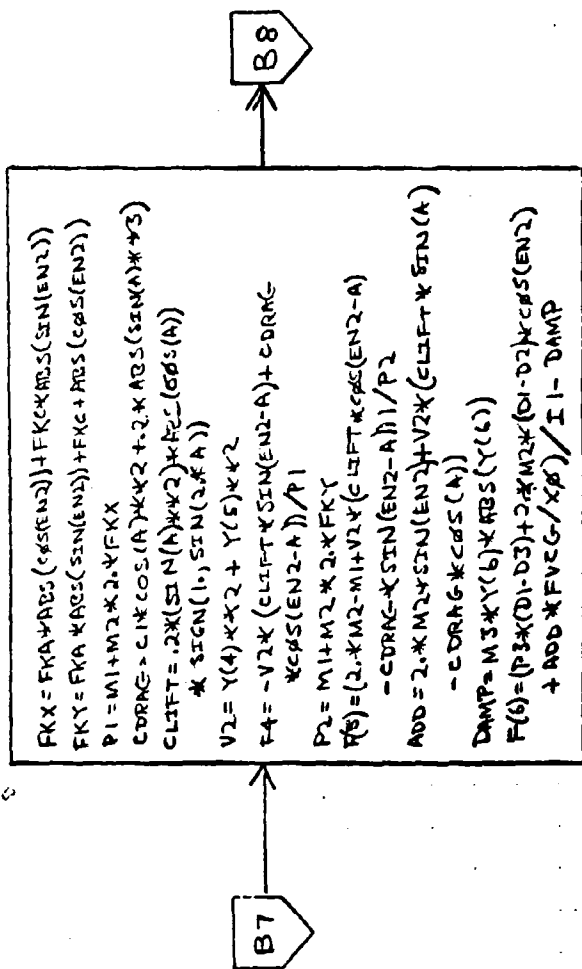 B7
FKX=FKA*ABS(CØS(EN2))+FKC*ABS(SIN(EN2))
FKY=FKA*ABS(SIN(EN2))+FKC*ABS(CØS(EN2))
P1=M1+M2*2.*FKX
CDRAG=C1*COS(A)**2+.2*ABS(SIN(A)**3)
CLIFT=.2*(SIN(A)**2)*ABS(CØS(A))
*SIGN(1.,SIN(2.*A))
V2=Y(4)**2+Y(5)**2
F4=-V2*(CLIFT*SIN(EN2-A)+CDRAG
*CØS(EN2-A))/P1
P2=M1+M2*2.*FKY
F(5)=(2.*M2-M1+V2*(CLIFT*CØS(EN2-A)
-CDRAG*SIN(EN2-A)))/P2
ADD=2.*M2*SIN(EN2)+V2*(CLIFT*SIN(A)
-CDRAG*CØS(A))
DAMP=M3*Y(6)*ABS(Y(6))
F(6)=(P3*(D1-D3)+2.*M2*(D1-D2)*CØS(EN2)
+ADD*FVCG/XØ)/I1-DAMP
B8